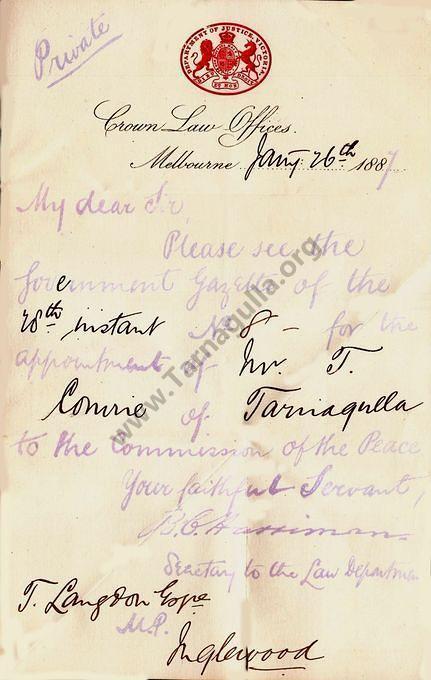 Private
DEPARTMENT OF JUSTICE, VICTORIA.
Crown Law Offices.
Melbourne Jany. 26th 1887
My dear Sir,
Please see the
Government Gazette of the
28th instant No 8 - for the
appointment of Mr. T.
Comrie of Tarnagulla
to the Commission of the Peace
Your faithful Servant,
B.C. Harriman
Secretary to the Law Department
T. Langdon Esqre
M.P.
Inglewood
www.Tarnagulla.org